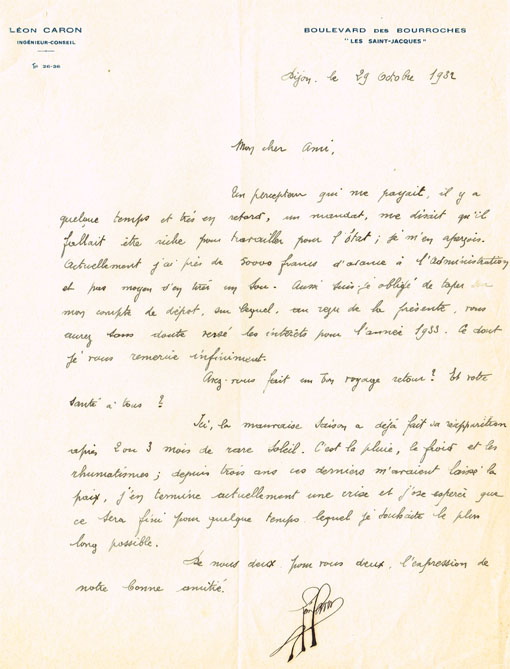 LÉON CARON
INGÉNIEUR-CONSEIL
26-26
BOULEVARD DES BOURROCHES
"LES SAINT-JACQUES"
Dijon, le 29 Octobre 1932
Mon cher Ami,
Un percepteur qui me payait, il y a
quelque temps et très en retard, un mandat, me disait qu'il
fallait être riche pour travailler pour l'État ; je m'en aperçois.
Actuellement j'ai près de 50000 francs d'avance à l'Administration
et pas moyen d'en tirer un sou. Aussi suis-je obligé de taper
mon compte de dépôt, sur lequel, au reçu de la présente, vous
aurez sans doute versé les intérêts pour l'année 1933. Ce dont
je vous remercie infiniment.
Avez-vous fait un bon voyage retour ? Et votre
santé à tous ?
Ici, la mauvaise saison a déjà fait sa réapparition
après 2 ou 3 mois de rare soleil. C'est la pluie, le froid et les
rhumatismes ; depuis trois ans ces derniers m'avaient laissé la
paix, j'en termine actuellement une crise et j'ose espérer que
ce sera fini pour quelque temps lequel je souhaite le plus
long possible.
De nous deux, pour vous deux, l'expression de
notre bonne amitié.